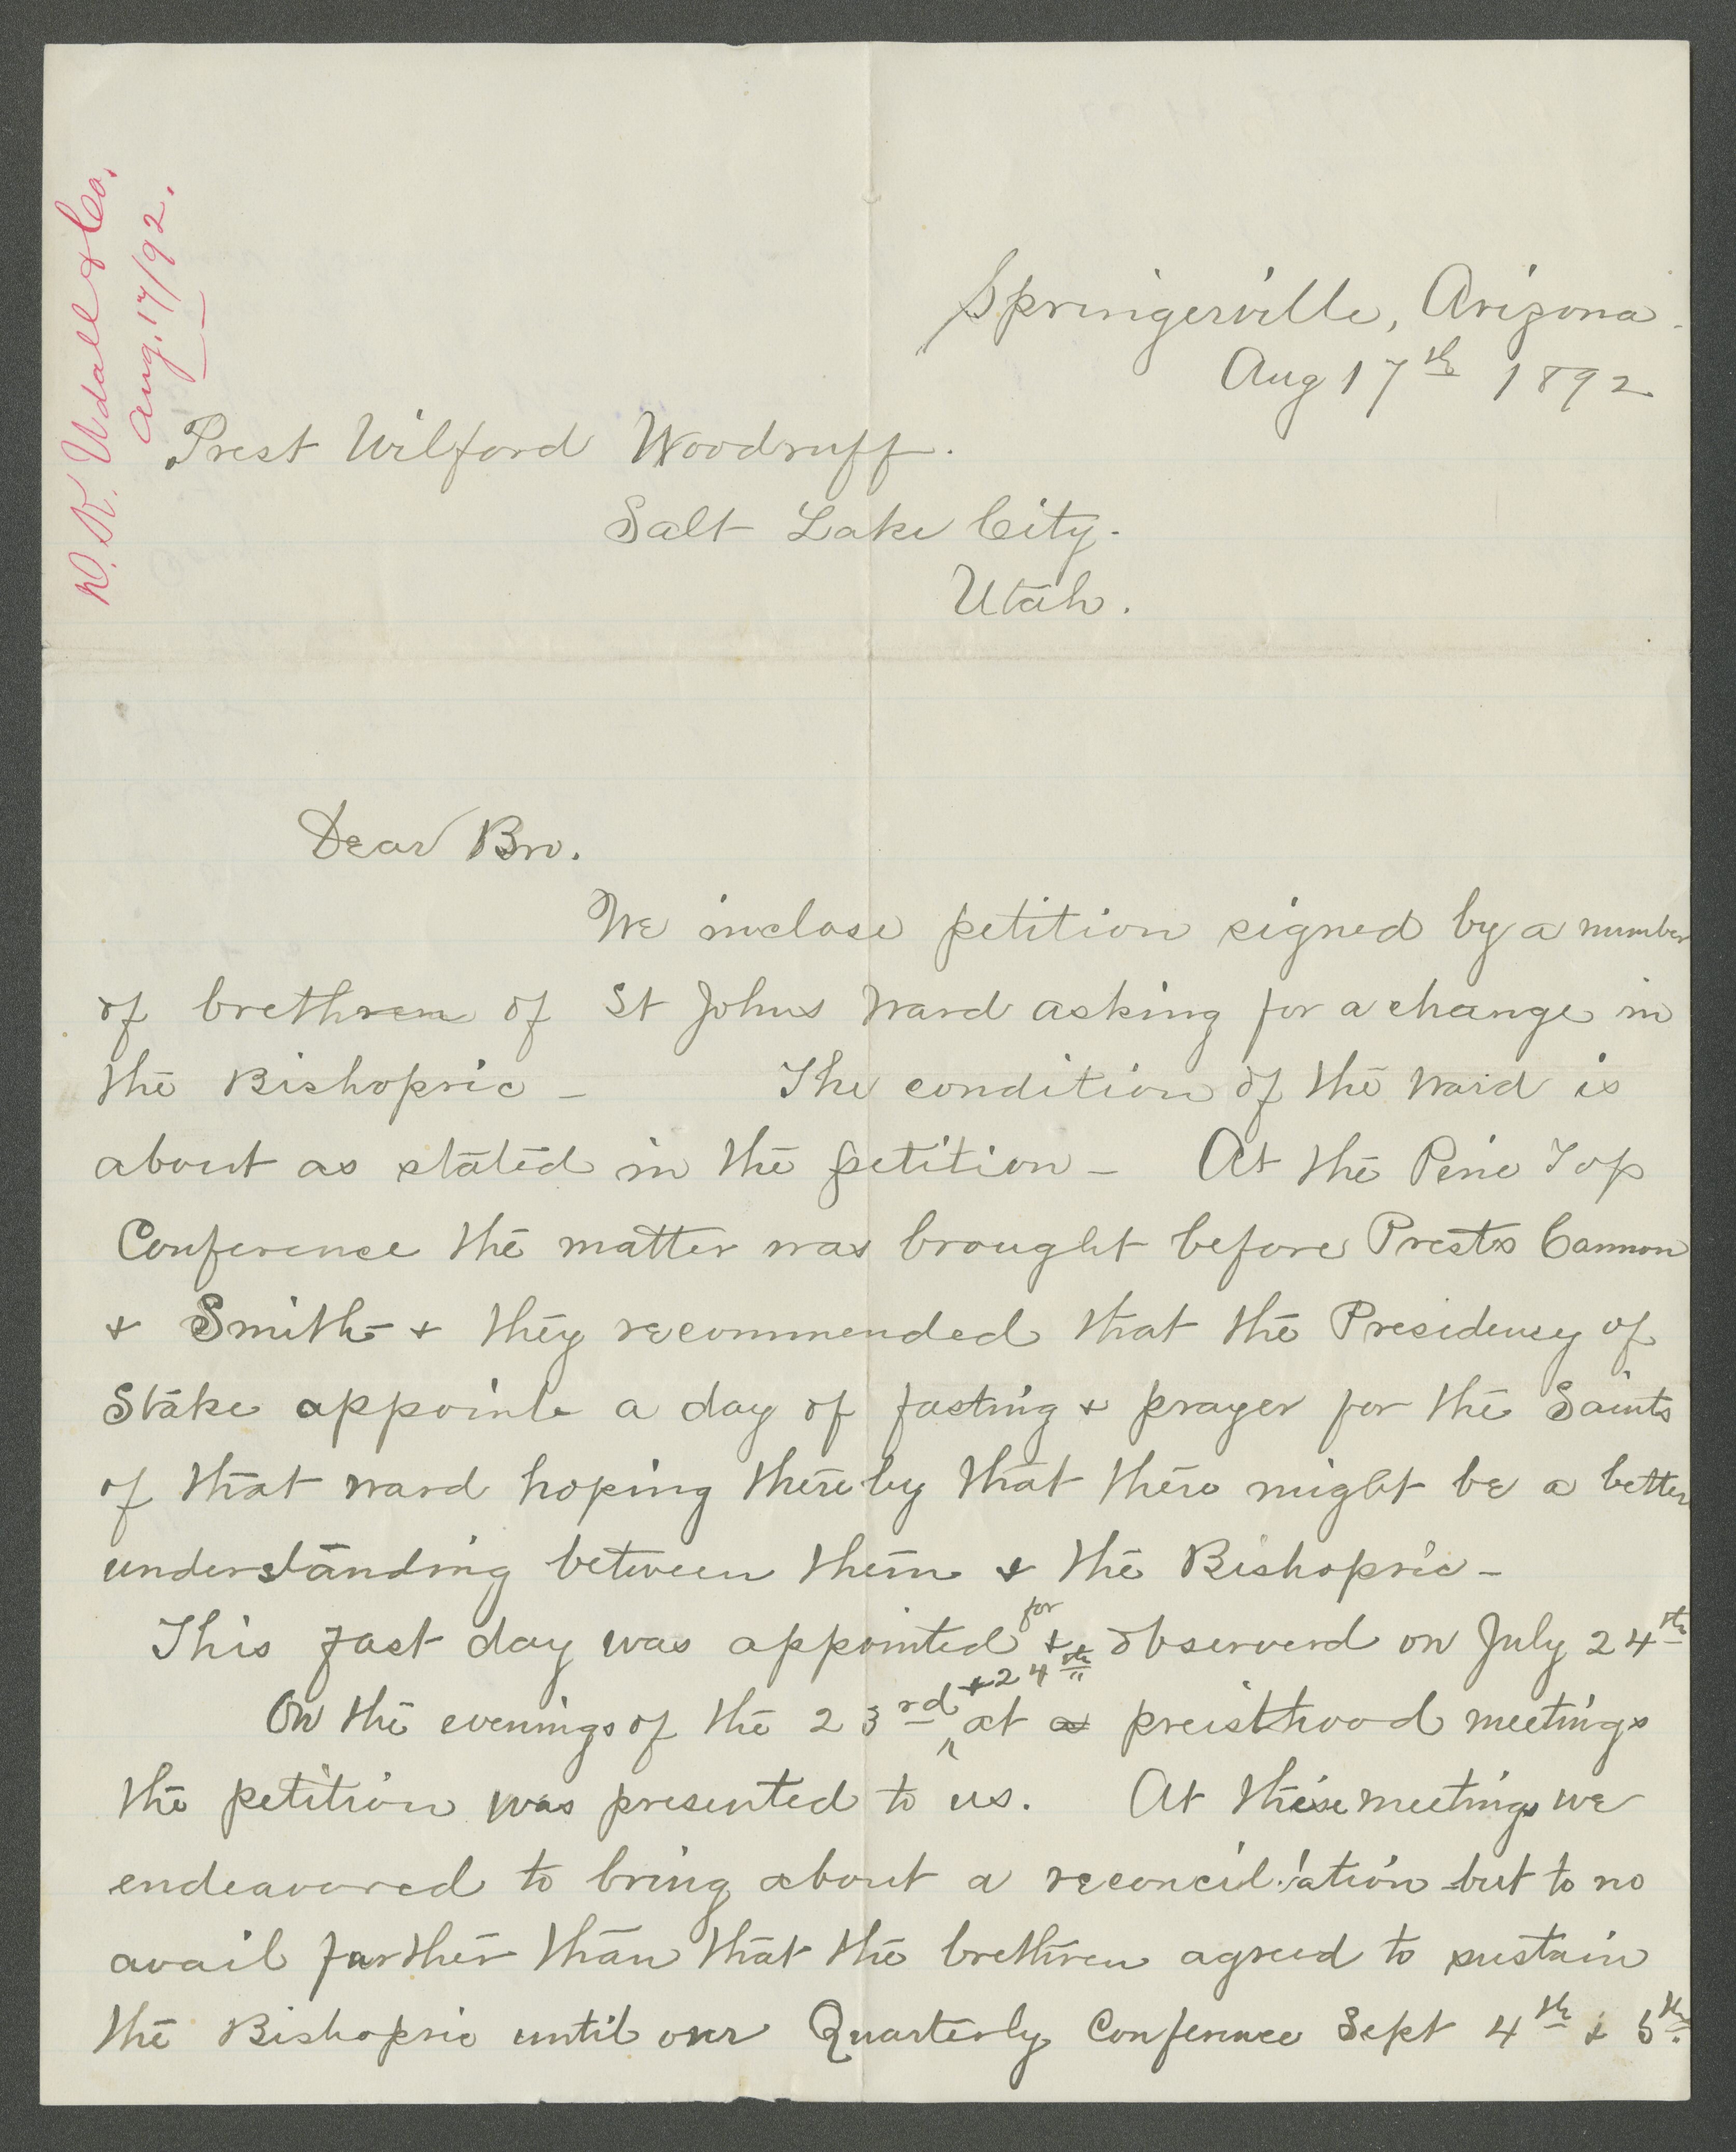 D. K. Udall & Co.
Aug. 17/92.
Springerville, Arizona.
Aug 17th 1892
Prest Wilford Woodruff.
Salt Lake City.
Utah.
Dear Bro.
We inclose petition signed by a number
of brethren of St Johns Ward asking for a change in
the Bishopric - The condition of the Ward is
about as stated in the petition - At the Pine Top
Conference the matter was brought before Prests Cannon
& Smith & they recommended that the Presidency of
Stake appoint a day of fasting & prayer for the Saints
of that ward hoping thereby that there might be a better
understanding between them & the Bishopric -
This fast day was appointed for & observed on July 24th
On the evenings of the 23rd & 24th at a preisthood meetings
the petition was presented to us. At these meetings we
endeavored to bring about a reconciliation but to no
avail further than that the brethren agreed to sustain
the Bishopric until our Quarterly Conference Sept 4th & 5th.